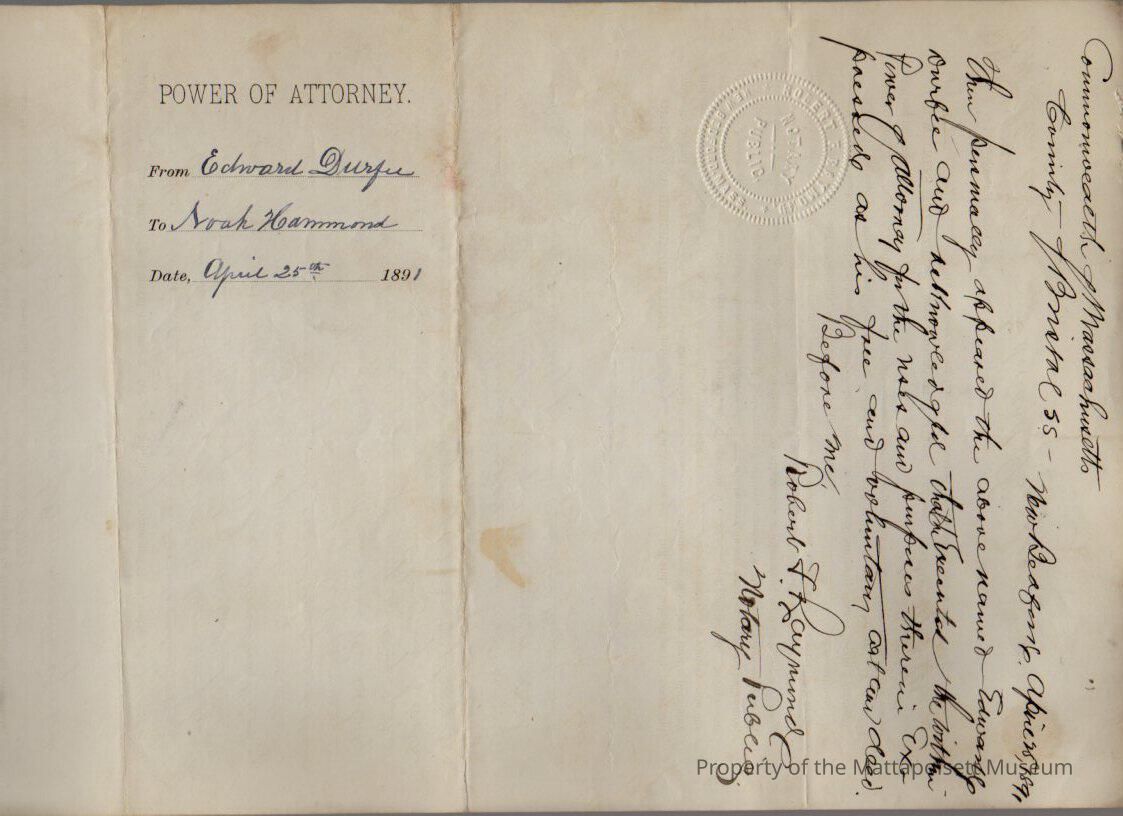 POWER OF ATTORNEY.
From Edward Durfee
To Noah Hammond
Date, April 25th 1891
Commonwealth of Massachusetts
County of Bristol ss - New Bedford. April 25, 1891
Then personally appeared the above named Edward
Durfee and acknowledged that he executed the within
Power of attorney for the uses and purposes therein Ex-
pressed as his free and voluntary act and deed.
Before me
Robert
Notary Public
ROBERT
NOTARY
PUBLIC
Property of the Mattapoisett Museum